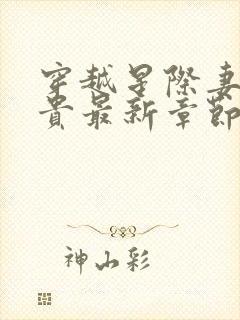 穿越星際妻
貴最新章節
神山彩